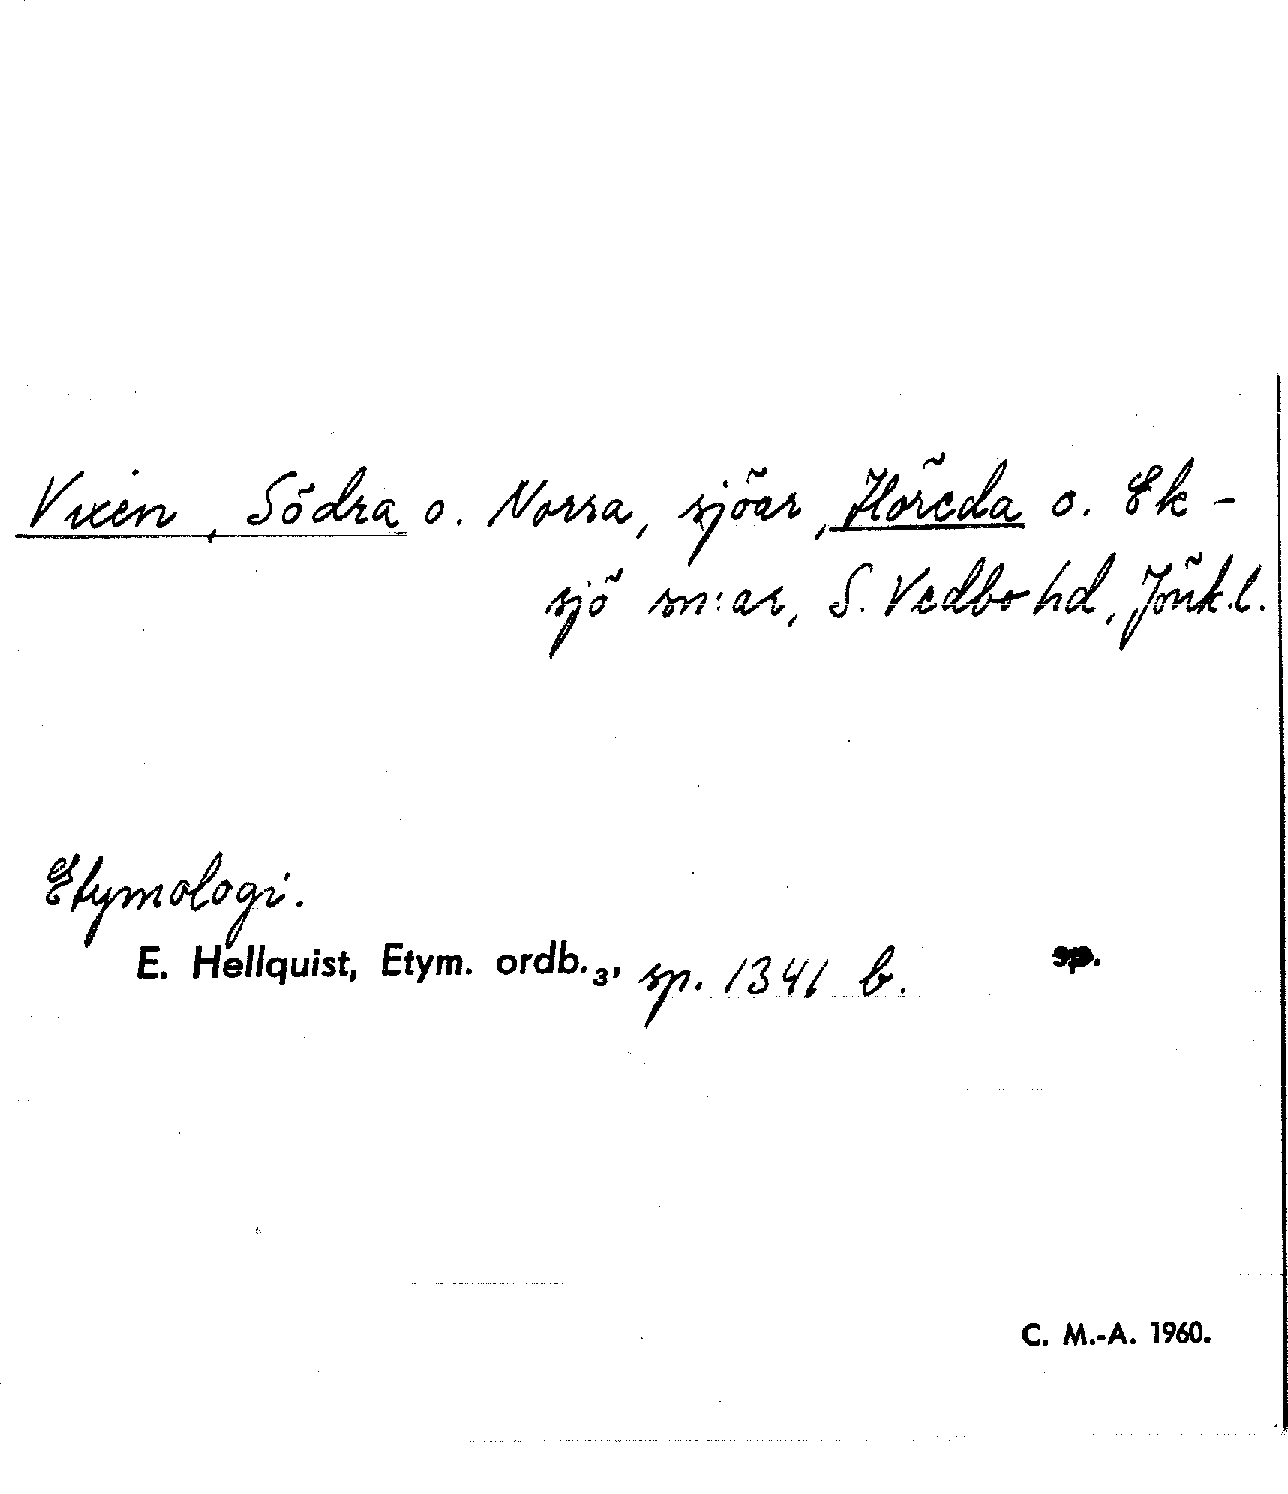 Vixen, Södra o. Norra, sjöar, Höreda o. Ek-
sjö sn:ar, S. Vedbo hd, Jönk.l.
Etymologi.
E. Hellquist, Etym. ordb.3, sp. 1341 b. sp.
C. M.-A. 1960.